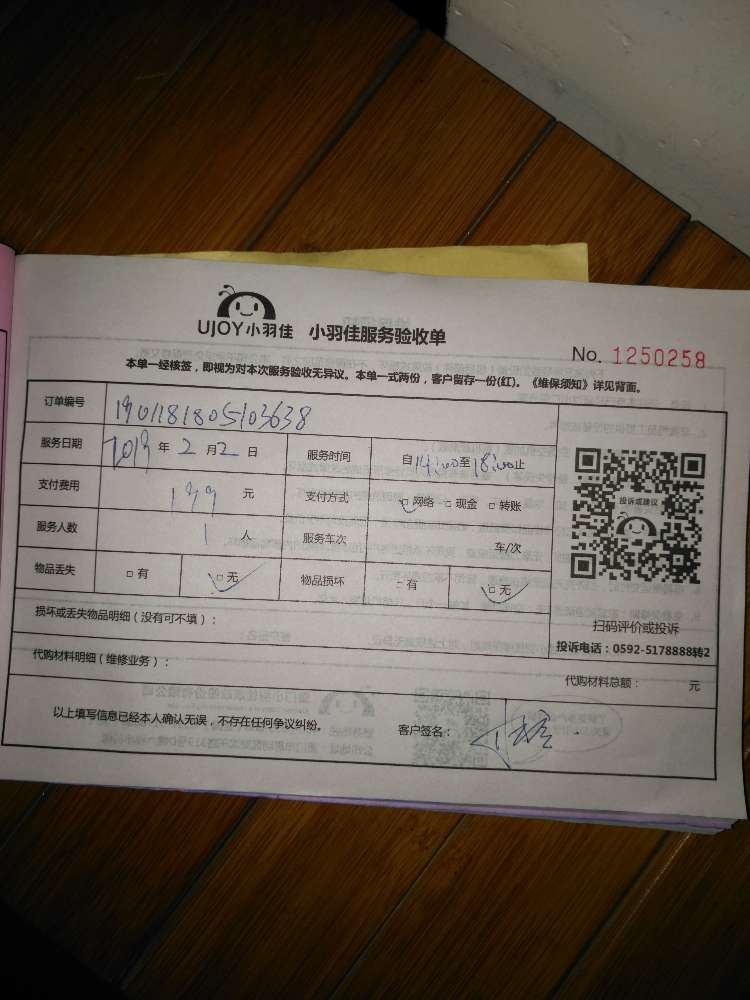 UJOY小羽佳 小羽佳服务验收单
No. 1250258
本单一经核签，即视为对本次服务验收无异议。本单一式两份，客户留存一份(红)。《维保须知》详见背面。
订单编号 1901181805103638
服务日期 2019 年 2 月 2 日 服务时间 自14:00至18:00止
支付费用 199 元 支付方式 □网络 □现金 □转账
服务人数 1 人 服务车次 车/次
物品丢失 □有 □无 物品损坏 □有 □无
投诉或建议
扫码评价或投诉
投诉电话：0592-5178888转2
损坏或丢失物品明细（没有可不填）：
代购材料明细（维修业务）：
代购材料总额： 元
以上填写信息已经本人确认无误，不存在任何争议纠纷。 客户签名：